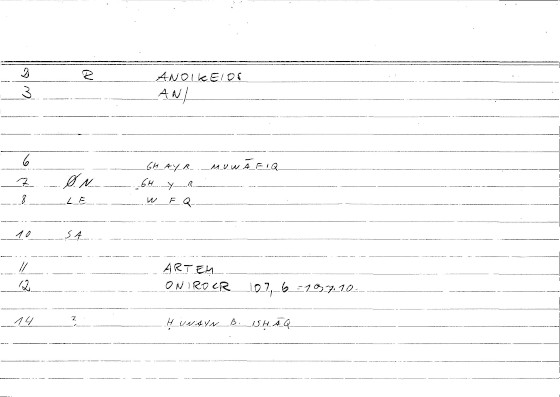 2 R ANOIKEIOS
3 AN/
6 GHAYR MUWĀFIQ
7 ØN GH Y R
8 LE W F Q
10 SA
11 ARTEM
12 ONIROCR 107, 6 = 197.10
14 ? ḤUNAYN B. ISḤĀQ